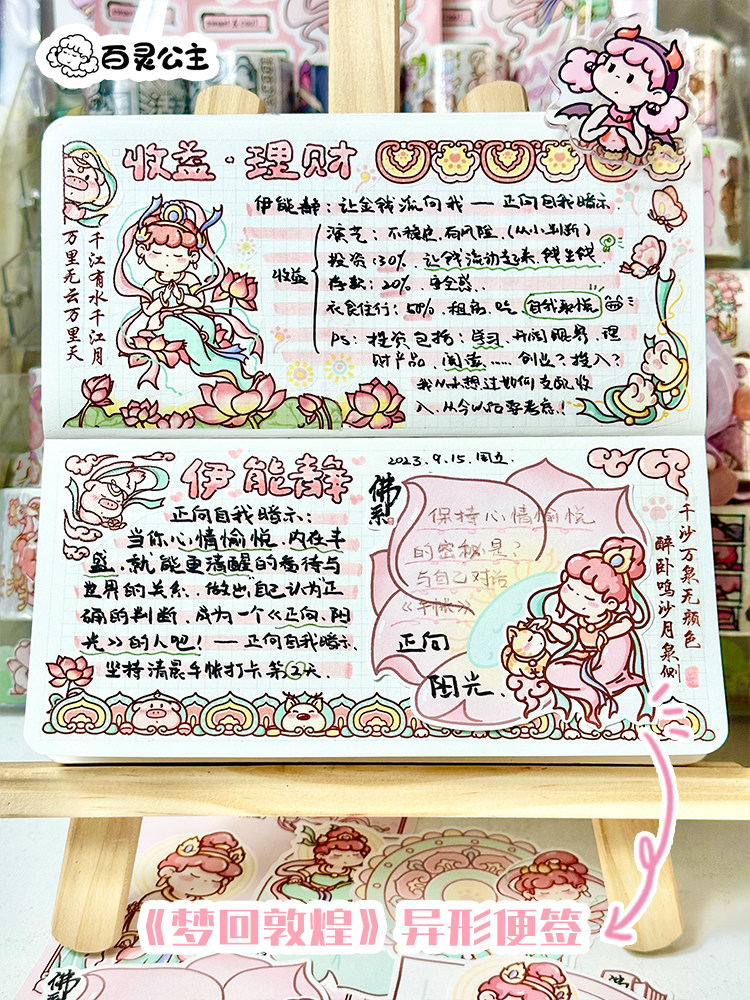 百灵公主
收益·理财
千江有水千江月
万里无云万里天
伊能静：让金钱流向我——正向自我暗示
收益
演艺：不稳定，有风险.（从小判断）
投资：30%. 让钱流动起来，钱生钱.
存款：20%. 安全感.
衣食住行：50%. 租房、吃 自我取悦
PS：投资包括：学习、开阔眼界、理
财产品、阅读……创业？投入？
我从未想过如何支配收
入.从今以后要考虑！
伊能静
正向自我暗示：
当你心情愉悦、内在丰
盛，就能更清醒的看待与
世界的关系，做出自己认为正
确的判断，成为一个《正向、阳
光》的人吧！——正向自我暗示.
坚持清晨手帐打卡第②天.
2023.9.15.周五.
佛系
保持心情愉悦
的密秘是？
与自己对话
《手帐》
正向
阳光.
千沙万泉无颜色
醉卧鸣沙月泉侧
《梦回敦煌》异形便签
佛系